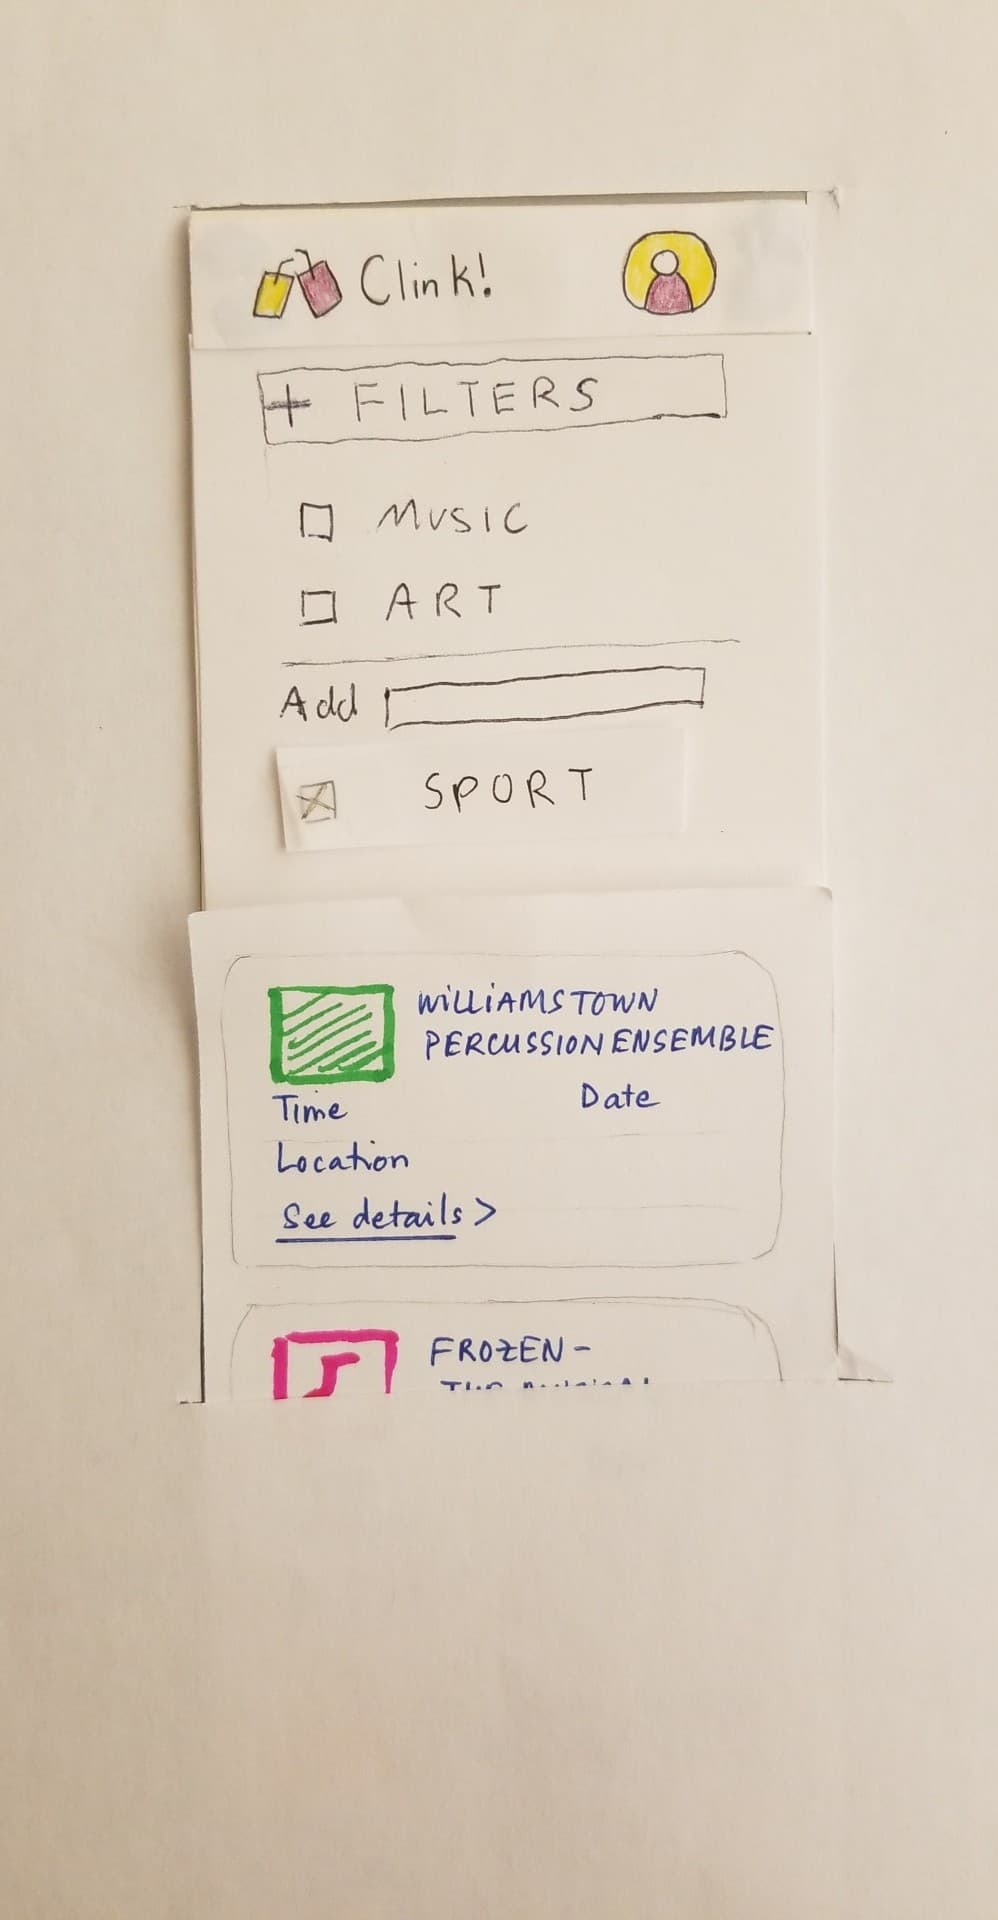 Clink!
+ FILTERS
MUSIC
ART
Add
SPORT
WiLLiAMSTOWN
PERCUSSION ENSEMBLE
Time Date
Location
See details >
FROZEN -